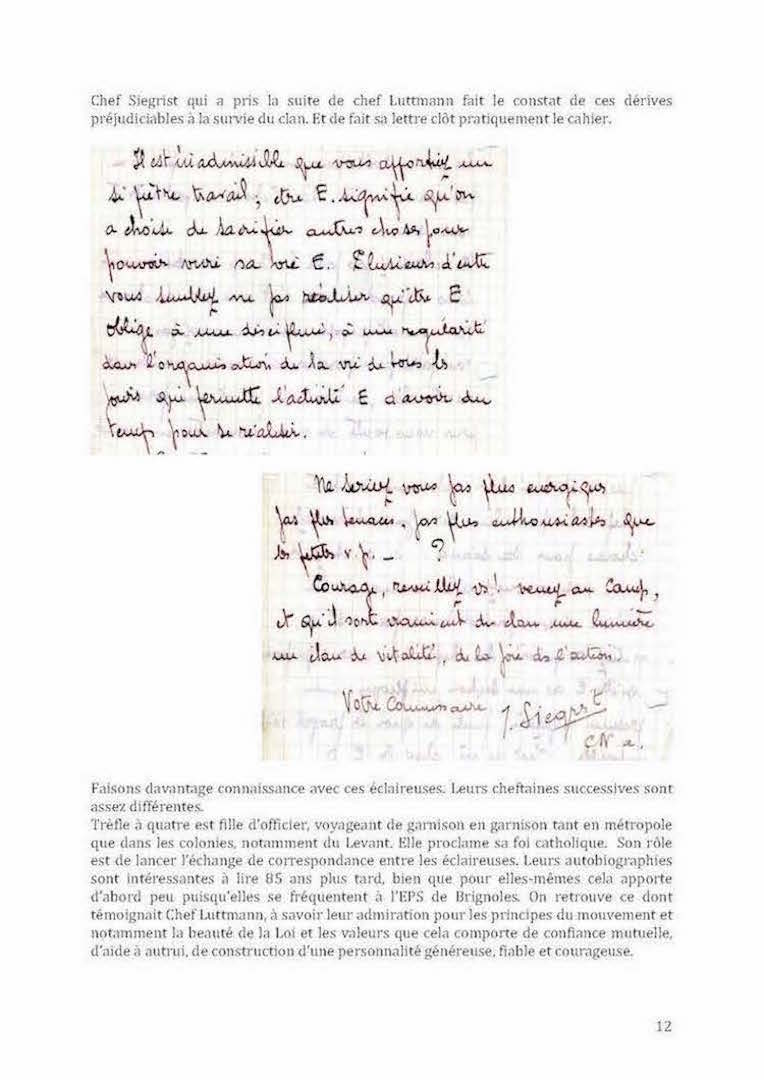 Chef Siegrist qui a pris la suite de chef Luttmann fait le constat de ces dérives
préjudiciables à la survie du clan. Et de fait sa lettre clôt pratiquement le cahier.
Il est inadmissible que vous apportiez un
si piètre travail ; être E. signifie qu'on
a choisi de sacrifier autres choses pour
pouvoir vivre sa vie E. Plusieurs d'entre
vous semblez ne pas réaliser qu'être E
oblige à une discipline, à une régularité
dans l'organisation de la vie de tous ls
jours qui permette l'activité E d'avoir du
temps pour se réaliser.
Ne seriez vous pas plus énergiques
pas plus tenaces, pas plus enthousiastes que
les petits v. p. _ ?
Courage, réveillez vs ! venez au Camp,
et qu'il sorte vraiment du clan une lumière
un élan de vitalité, de la joie ds l'action.
Votre Commissaire J. Siegrist
CN
Faisons davantage connaissance avec ces éclaireuses. Leurs cheftaines successives sont
assez différentes.
Trèfle à quatre est fille d'officier, voyageant de garnison en garnison tant en métropole
que dans les colonies, notamment du Levant. Elle proclame sa foi catholique. Son rôle
est de lancer l'échange de correspondance entre les éclaireuses. Leurs autobiographies
sont intéressantes à lire 85 ans plus tard, bien que pour elles-mêmes cela apporte
d'abord peu puisqu'elles se fréquentent à l'EPS de Brignoles. On retrouve ce dont
témoignait Chef Luttmann, à savoir leur admiration pour les principes du mouvement et
notamment la beauté de la Loi et les valeurs que cela comporte de confiance mutuelle,
d'aide à autrui, de construction d'une personnalité généreuse, fiable et courageuse.
12